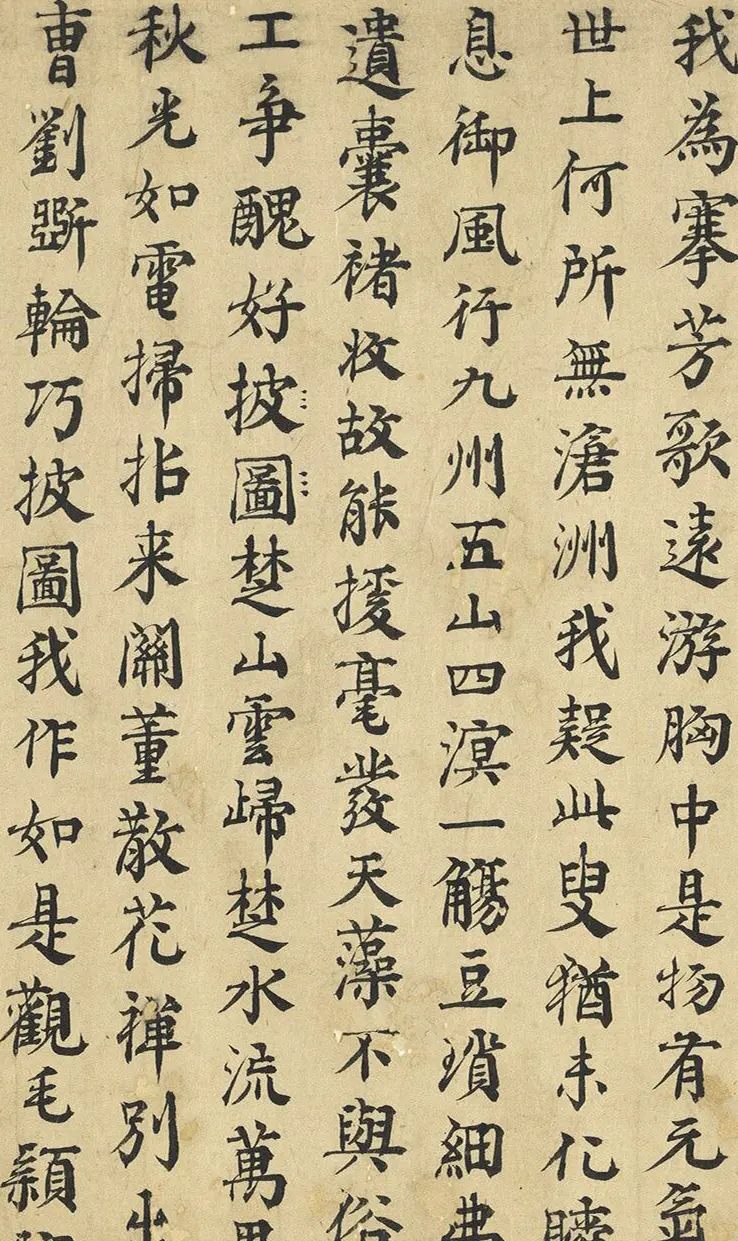 我為搴芳歌遠游胸中是物有元氣
世上何所無滄洲我疑此叟猶未化瞬
息御風行九州五山四溟一觴豆瑣細弗
遺囊褚收故能援毫發天藻不與俗
工爭醜好披圖楚山雲歸楚水流萬里
秋光如電掃招来關董散花禪別出
曹劉斲輪巧披圖我作如是觀毛穎